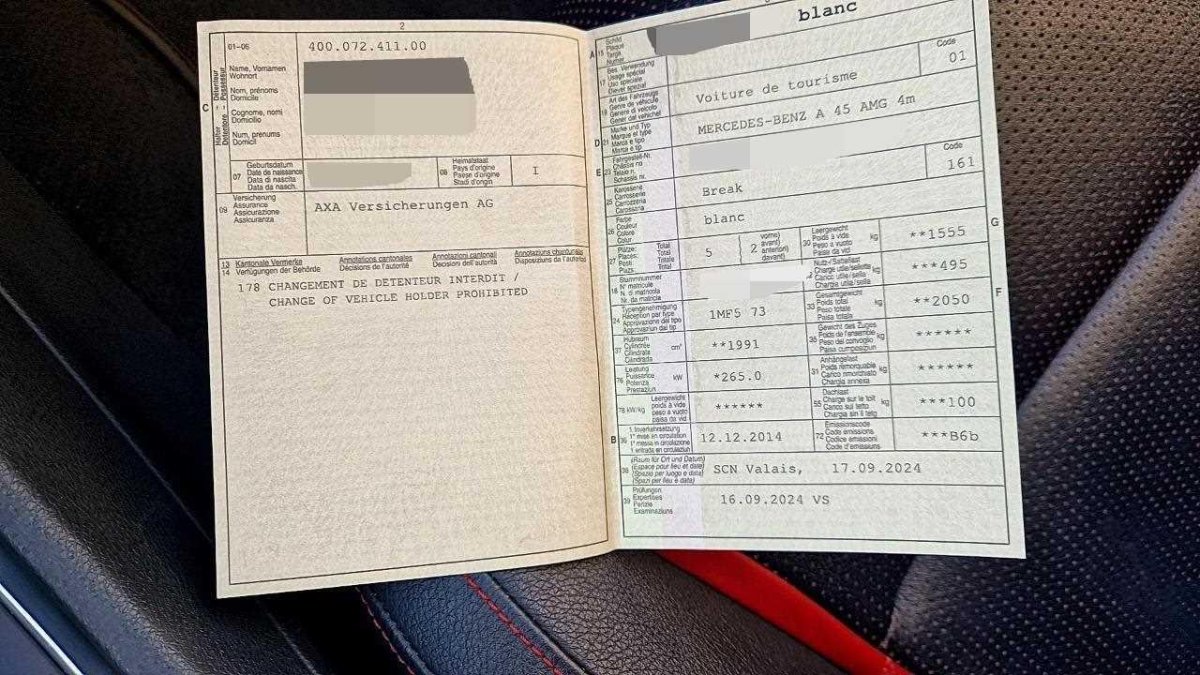 2
01-06
400.072.411.00
C
Halter
Détenteur
Detentore
Possessur
Name, Vornamen
Wohnort
Nom, prénoms
Domicile
Cognome, nomi
Domicilio
Num, prenums
Domicil
07
Geburtsdatum
Date de naissance
Data di nascita
Data da nasch.
08
Heimatstaat
Pays d'origine
Paese d'origine
Stadi d'origin
I
09
Versicherung
Assurance
Assicurazione
Assicuranza
AXA Versicherungen AG
13
14
Kantonale Vermerke
Verfügungen der Behörde
Annotations cantonales
Décisions de l'autorité
Annotazioni cantonali
Decisioni dell'autorità
Annotaziuns chantunalas
Disposiziuns da l'autoritad
178 CHANGEMENT DE DETENTEUR INTERDIT /
CHANGE OF VEHICLE HOLDER PROHIBITED
blanc
A
15
Schild
Plaque
Targa
Numer
17
Bes. Verwendung
Usage spécial
Uso speciale
Diever spezial
Code
01
19
Art des Fahrzeugs
Genre de véhicule
Genere di veicolo
Gener del vehichel
Voiture de tourisme
D
21
Marke und Typ
Marque et type
Marca e tipo
Marca e tip
MERCEDES-BENZ A 45 AMG 4m
E
23
Fahrgestell-Nr.
Châssis no
Telaio n.
Schassis nr.
Code
161
25
Karosserie
Carrosserie
Carrozzeria
Carossaria
Break
26
Farbe
Couleur
Colore
Colur
blanc
27
Plätze: Total
Places: Total
Posti: Totale
Plazs: Total
5
2
vorne)
avant)
anteriori)
davant)
30
Leergewicht
Poids à vide
Peso a vuoto
Paisa da vid
kg
**1555
G
18
Stammnummer
N° matricule
N. di matricola
Nr. da matricla
Nutz-/Sattellast
Charge utile/sellette
Carico utile/sella
Chargia utila/sella
kg
***495
24
Typengenehmigung
Réception par type
Approvazione del tipo
Approvaziun dal tip
1MF5 73
33
Gesamtgewicht
Poids total
Peso totale
Paisa totala
kg
**2050
F
37
Hubraum
Cylindrée
Cilindrata
Cilindrada
cm³
**1991
35
Gewicht des Zuges
Poids de l'ensemble
Peso del convoglio
Paisa cumposiziun
kg
******
76
Leistung
Puissance
Potenza
Prestaziun
kW
*265.0
31
Anhängelast
Poids remorquable
Carico rimorchiato
Chargia annexa
kg
******
78 kW/kg
Leergewicht
poids à vide
peso a vuoto
paisa da vid
******
55
Dachlast
Charge sur le toit
Carico sul tetto
Chargia sin il tetg
kg
***100
B
36
1. Inverkehrsetzung
1re mise en circulation
1a messa in circolazione
1. entrada en circulaziun
12.12.2014
72
Emissionscode
Code émissions
Codice emissioni
Code d'emissiuns
***B6b
38
(Raum für Ort und Datum)
(Espace pour lieu et date)
(Spazio per luogo e data)
(Spazi per lieu e data)
SCN Valais, 17.09.2024
39
Prüfungen
Expertises
Perizie
Examinaziuns
16.09.2024 VS